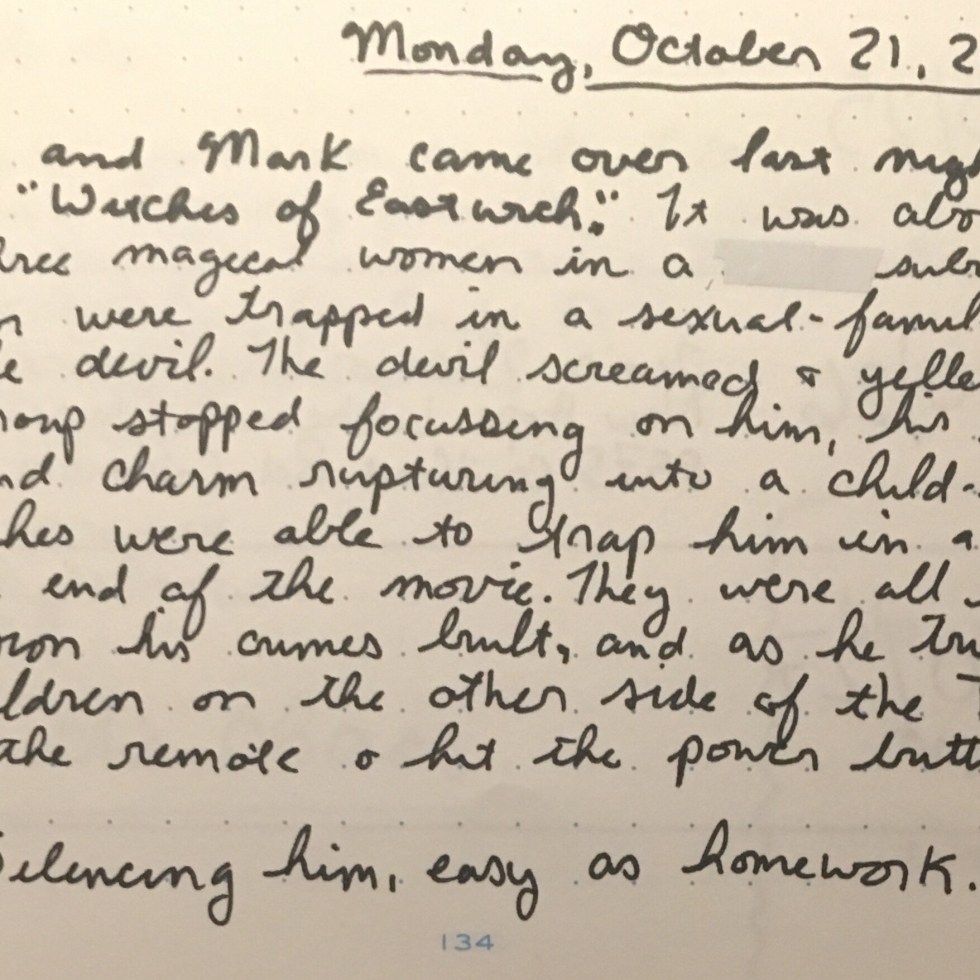 Monday, October 21, 2
and Mark came over last nigh
"Witches of Eastwick." It was abo
hree magical women in a subr
n were trapped in a sexual-famil
e devil. The devil screamed & yelle
roup stopped focussing on him, his
nd charm rupturing into a child-
ches were able to trap him in a
end of the movie. They were all
mansion his crimes built, and as he tri
ildren on the other side of the T
the remote & hit the power butt
Silencing him, easy as homework.
134